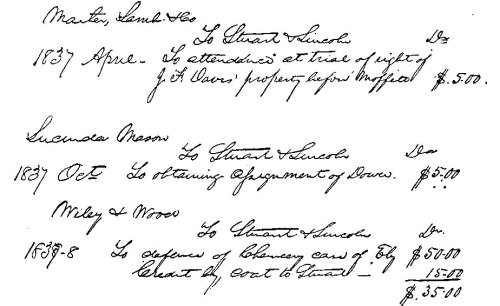 Marter, Lamb & Co
To Stuart & Lincoln Dr
1837 April - To attendance at trial of right of
J. F. Davis' property before Moffett $.5.00.
Lucinda Mason
To Stuart & Lincoln Dr
1837 Oct To obtaining assignment of Dower. $5.00
Wiley & Wood
To Stuart & Lincoln Dr.
1837-8 To defence of Chancery case of Ely $50.00
Credit by, coat to Stuart — 15.00
$.35.00